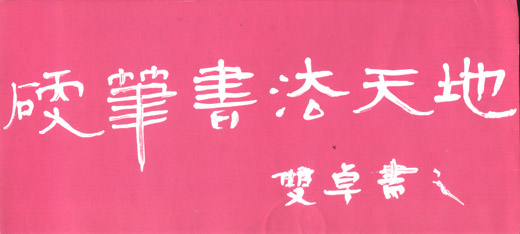 硬筆書法天地
雙卓書